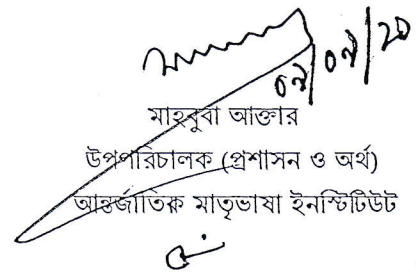 ০৭/০৭/২০
মাহবুবা আক্তার
উপপরিচালক (প্রশাসন ও অর্থ)
আন্তর্জাতিক মাতৃভাষা ইনস্টিটিউট